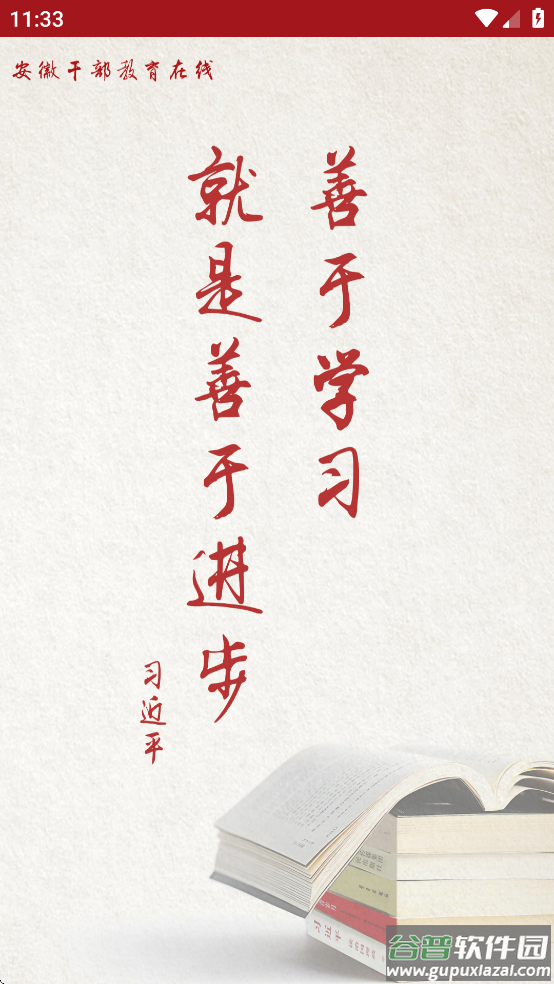 11:33
安徽干部教育在线
善于学习
就是善于进步
习近平
习近平
谷普软件园
www.gupuxlazal.com